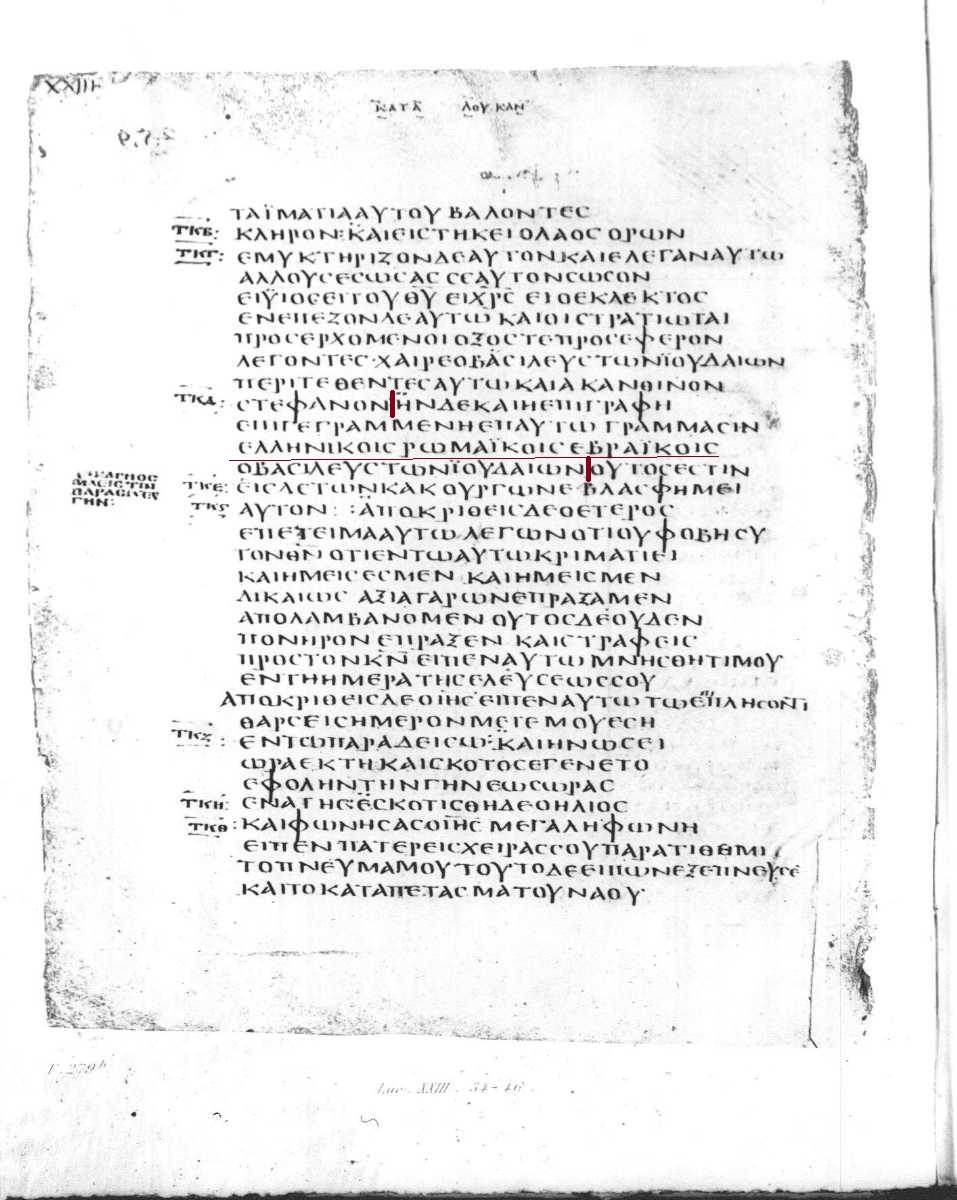 XXIII
ΚΑΤΑ ΛΟΥΚΑΝ
ΤΑΪΜΑΤΙΑΑΥΤΟΥ ΒΑΛΟΝΤΕС
ΤΚΒ: ΚΛΗΡΟΝ: ΚΑΙΕΙСΤΗΚΕΙΟΛΑΟС ΟΡωΝ
ΤΚΓ: ΕΜΥΚΤΗΡΙΖΟΝΔΕΑΥΤΟΝΚΑΙΕΛΕΓΑΝΑΥΤω
ΑΛΛΟΥСΕСωСΑС СΕΑΥΤΟΝСωСΟΝ
ΕΙΫΙΟСΕΙΤΟΥΘΥ ΕΙΧΡС ΕΙΟΕΚΛΕΚΤΟС
ΕΝΕΠΕΖΟΝΔΕΑΥΤω ΚΑΙΟΙСΤΡΑΤΙωΤΑΙ
ΠΡΟСΕΡΧΟΜΕΝΟΙΟΞΟСΤΕΠΡΟСΕΦΕΡΟΝ
ΛΕΓΟΝΤΕС·ΧΑΙΡΕΟΒΑСΙΛΕΥСΤωΝΪΟΥΔΑΙωΝ
ΠΕΡΙΤΕΘΕΝΤΕСΑΥΤω ΚΑΙΑΚΑΝΘΙΝΟΝ
ΤΚΔ: СΤΕΦΑΝΟΝ ΗΝΔΕΚΑΙΗΕΠΙΓΡΑΦΗ
ΕΠΙΓΕΓΡΑΜΜΕΝΗΕΠΑΥΤω ΓΡΑΜΜΑСΙΝ
ΕΛΛΗΝΙΚΟΙС ΡωΜΑΪΚΟΙС ΕΒΡΑΪΚΟΙС
ΟΒΑСΙΛΕΥСΤωΝΪΟΥΔΑΙωΝ ΟΥΤΟСΕСΤΙΝ
ΤΚΕ: ΕΙСΔΕΤωΝΚΑΚΟΥΡΓωΝΕΒΛΑСΦΗΜΕΙ
ΤΚϚ ΑΥΤΟΝ: :ΑΠΟΚΡΙΘΕΙСΔΕΟΕΤΕΡΟС
ΕΠΕΤΕΙΜΑΑΥΤω ΛΕΓωΝΟΤΙΟΥΦΟΒΗСΥ
ΤΟΝΘΝ ΟΤΙΕΝΤωΑΥΤωΚΡΙΜΑΤΙΕΙ
ΚΑΙΗΜΕΙСΕСΜΕΝ ΚΑΙΗΜΕΙСΜΕΝ
ΔΙΚΑΙωС ΑΞΙΑΓΑΡωΝΕΠΡΑΞΑΜΕΝ
ΑΠΟΛΑΜΒΑΝΟΜΕΝ ΟΥΤΟСΔΕΟΥΔΕΝ
ΠΟΝΗΡΟΝ ΕΠΡΑΞΕΝ ΚΑΙСΤΡΑΦΕΙС
ΠΡΟСΤΟΝΚΝ ΕΙΠΕΝΑΥΤω ΜΝΗСΘΗΤΙΜΟΥ
ΕΝΤΗΗΜΕΡΑΤΗСΕΛΕΥСΕωССΟΥ
ΑΠΟΚΡΙΘΕΙСΔΕΟΙΗС ΕΙΠΕΝΑΥΤω ΤωΕΠΠΛΗСΟΝΤΙ
ΘΑΡСΕΙСΗΜΕΡΟΝΜΕΤΕΜΟΥΕСΗ
ΤΚΖ: ΕΝΤωΠΑΡΑΔΕΙСω: ΚΑΙΗΝωСΕΙ
ωΡΑΕΚΤΗ ΚΑΙСΚΟΤΟСΕΓΕΝΕΤΟ
ΕΦΟΛΗΝΤΗΝΓΗΝΕωСωΡΑС
ΤΚΗ: ΕΝΑΤΗС: ΕСΚΟΤΙСΘΗΔΕΟΗΛΙΟС
ΤΚΘ: ΚΑΙΦωΝΗСΑСΟΙΗС ΜΕΓΑΛΗΦωΝΗ
ΕΙΠΕΝ ΠΑΤΕΡΕΙСΧΕΙΡΑССΟΥΠΑΡΑΤΙΘΕΜΙ
ΤΟΠΝΕΥΜΑΜΟΥ ΤΟΥΤΟΔΕΕΙΠωΝΕΞΕΠΝΕΥСΕ
ΚΑΙΤΟΚΑΤΑΠΕΤΑСΜΑΤΟΥΝΑΟΥ
F. 279b
Luc. XXIII. 34-46.